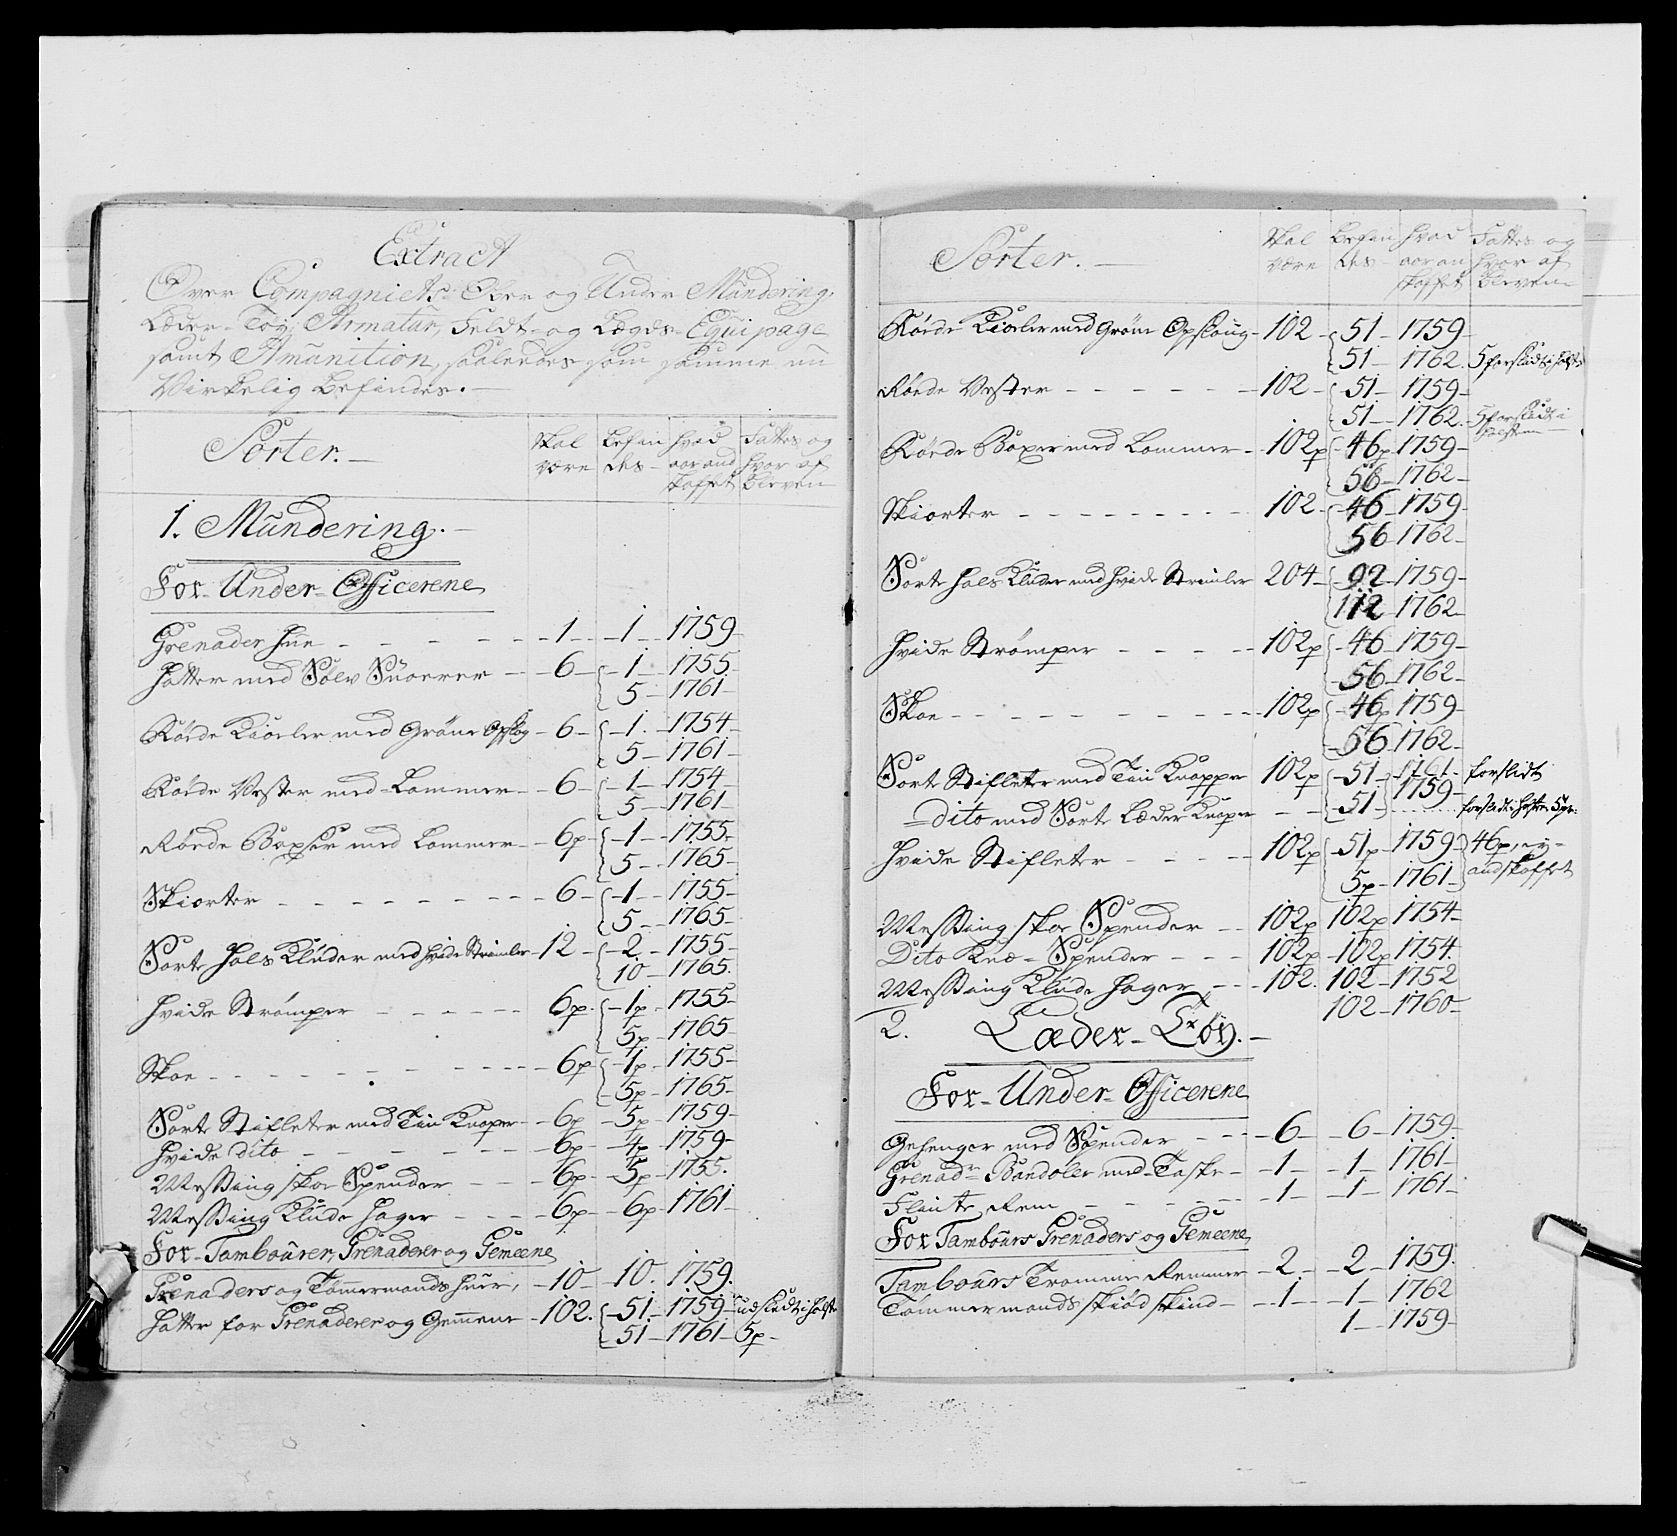 Extract
Over Compagniets Over og Under Mündering,
Læder-Tøy, Armatur, Feldt- og Lægds- Equipage
samt Amunition, saaledes som samme nu
Virkelig befindes.
Sorter. Skal være befindes hvad aar andskaffet Fattes og hvor af bleven
1. Mündering.
For Under-Officerene
Grenader Hue - 1 - 1 - 1759
Hatter med Sølv Snorer - 6 - 1 - 1755
5 - 1761
Røede Kiorler med Grøne Opslag - 6 - 1 - 1754
5 - 1761
Røede Vester med Lommer - 6 - 1 - 1754
5 - 1761
Røede Boxser med Lommer - 6p - 1 - 1755
5 - 1765
Skiorter - 6 - 1 - 1755
5 - 1765
Sorte Hals Klüder med hvide Strimler - 12 - 2 - 1755
10 - 1765
Hvide Strømper - 6p - 1p - 1755
5p - 1765
Skoe - 6p - 1p - 1755
5p - 1765
Sorte Stifleter med Tin Knaper - 6p - 5p - 1759
Hvide dito - 6p - 4p - 1759
Messing skoe Spender - 6p - 5p - 1755
Messing Klüde Hager - 6p - 6p - 1761
For Tambourer, Grenaderer og Gemeene
Grenaders og Tømermands Huer, - 10 - 10 - 1759
Hatter for Grenaderer og Gemene - 102 - 51 - 1759 - udslidt i Holst
51 - 1761 - 5p
Sorter. Skal være befindes hvad aar anskaffet Fattes og hvor af bleven
Røede Kiorler med Grøne Opslaug - 102 - 51 - 1759
51 - 1762 5 forslidt i Holst
Røede Vester - 102 - 51 - 1759
51 - 1762 5 forslidt i Holsten
Røede Boxer med Lommer - 102p - 46p - 1759
56 - 1762
Skiorter - 102 - 46 - 1759
56 - 1762
Sorte Hals Klüder med hvide Strimler 204 - 92 - 1759
112 - 1762
Hvide Strømper - 102p - 46 - 1759
56 - 1762
Skoe - 102p - 46p - 1759
56 - 1762
Sort Stifleter med Tin Knapper 102p - 51 - 1761 - forslidt
dito med Sorte Læder Knaper - 51 - 1759
Hvide Stifleter - 102p - 51p - 1759 46p, ny
5p - 1761 andskaffet
Messing skoe Spender - 102p 102p 1754
Dito Knæ-Spender - 102p - 102p 1754
Messing Klüde Hager - 102 102 - 1752
102 - 1760
2. Læder-Tøy.
For Under-Officerene
Gehenger med Spender - 6 - 6 - 1759
Grenad: Bandoler med Taske - 1 - 1 - 1761
Flinte Rem - 1 - 1 - 1761
For Tambours Grenaders og Gemeene
Tambours Tromme Remmer - 2 - 2 - 1759
Tømmermands skiød skind - 1 - 1 - 1762
1 - 1759